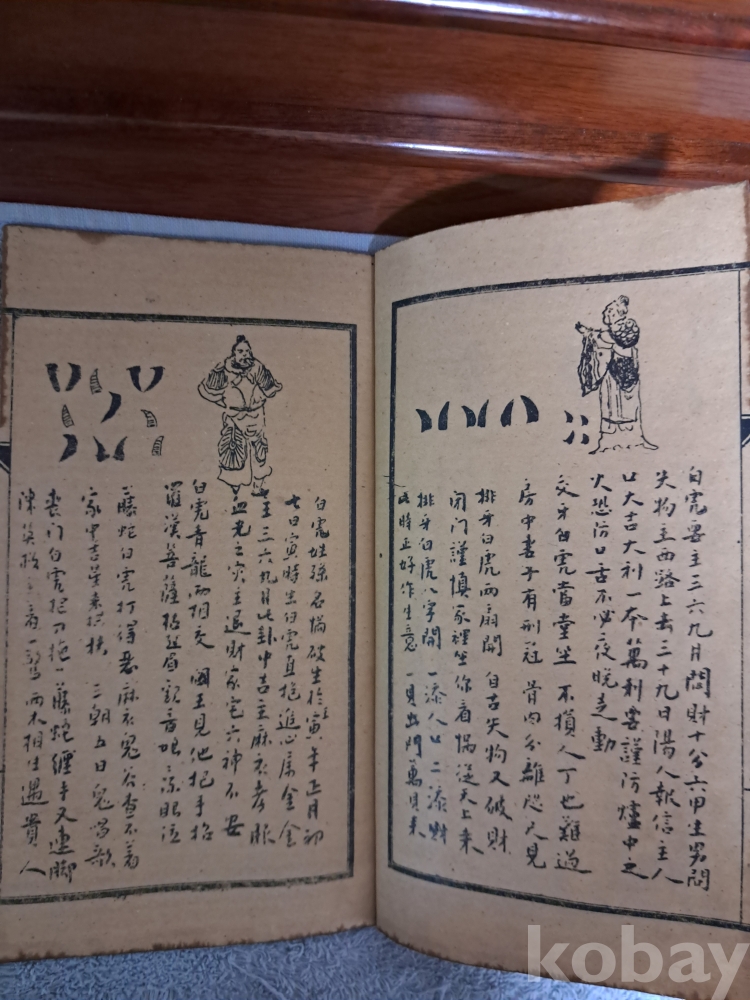 白虎要主三六九月問財十分六甲生男問
失物主西路上去三十九日陽人報信主人
口大吉大利一本萬利要謹防爐中之
火恐防口舌不必夜晚走動
交牙白虎當堂坐 不損人丁也難過
房中妻子有刑冠 骨肉分離恐人見
排牙白虎兩扇開 自古失物又破財
閉门謹慎家裡坐 你看惱從天上來
排牙白虎八字開 一添人口二添財
此時正好作生意 一見出門萬見來
白虎姓孫名惱破生於寅年正月卯
七日寅時生白虎真抱進心属金金
主三六九月此卦中吉主麻衣考服
血光之灾主退財家宅六神不安
白虎青龍兩相交 國王見他把手招
羅漢菩薩拈丝眉 觀音唱 流眼泣
藤蛇白虎打得惡 麻衣鬼谷
家中吉星来 扶 三朝五日鬼唱歌
喪门白虎拦刀拖 藤蛇纏手又連脚
兩木相生遇貴人
kobay